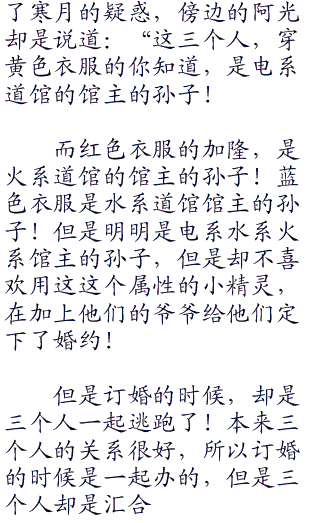 了寒月的疑惑，傍边的阿光
却是说道：“这三个人，穿
黄色衣服的你知道，是电系
道馆的馆主的孙子！
而红色衣服的加隆，是
火系道馆的馆主的孙子！蓝
色衣服是水系道馆馆主的孙
子！但是明明是电系水系火
系馆主的孙子，但是却不喜
欢用这这个属性的小精灵，
在加上他们的爷爷给他们定
下了婚约！
但是订婚的时候，却是
三个人一起逃跑了！本来三
个人的关系很好，所以订婚
的时候是一起办的，但是三
个人却是汇合